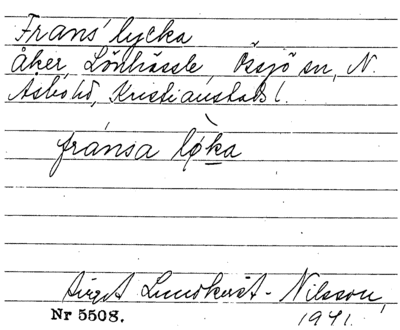 Frans' lycka
Åker, Lönhässle, Össjö sn, N.
Åsbo hd, Kristianstads l.
fránsa lø̀ka
Birgit Lundkvist-Nilsson,
1941.
Nr 5508.